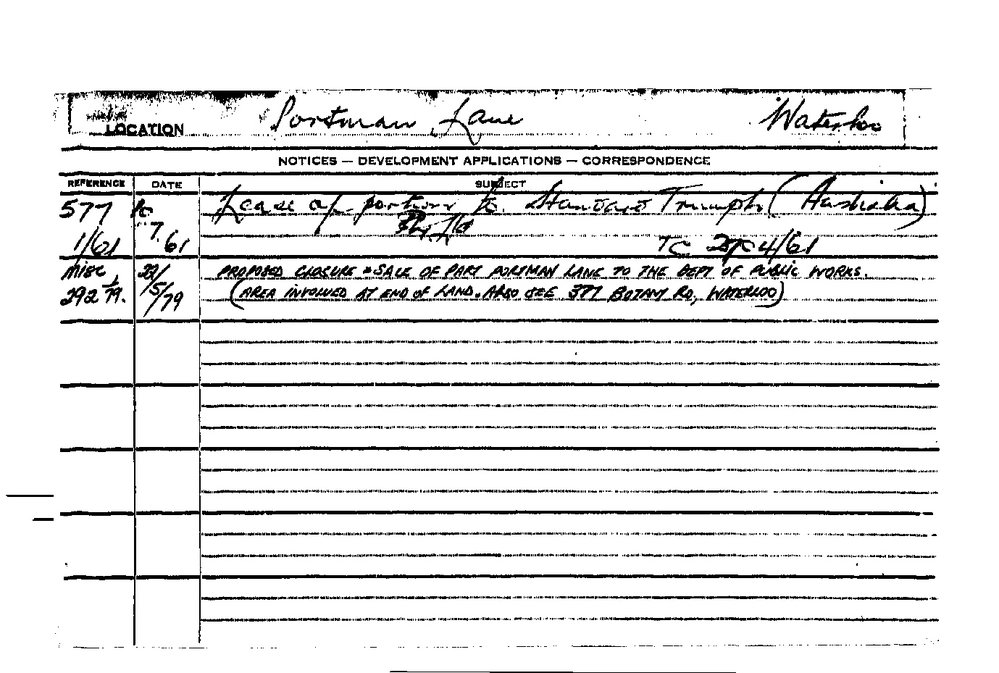 LOCATION Portman Lane Waterloo
NOTICES — DEVELOPMENT APPLICATIONS — CORRESPONDENCE
REFERENCE DATE SUBJECT
577 Lease of portion to Standard Triumph (Australia)
Pty Ltd
1/61 7.61 TC 4/61
Misc 22/ PROPOSED CLOSURE & SALE OF PART PORTMAN LANE TO THE DEPT OF PUBLIC WORKS.
292/79. /5/79 (AREA INVOLVED AT END OF LAND. ALSO SEE 377 BOTANY RD, WATERLOO)